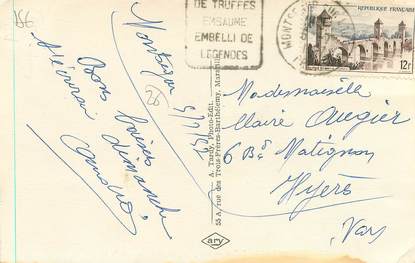 156
DE TRUFFES
EMBAUME
EMBELLI DE
LEGENDES
RÉPUBLIQUE FRANÇAISE
12F
26
Bons baisers
dimanche
A. Tardy, Photo-Edit.
55 A, rue des Trois-Frères-Barthélemy, Marseille
ary
Mademoiselle
Claire Augier
6 Bd Matignon
Hyères
Var